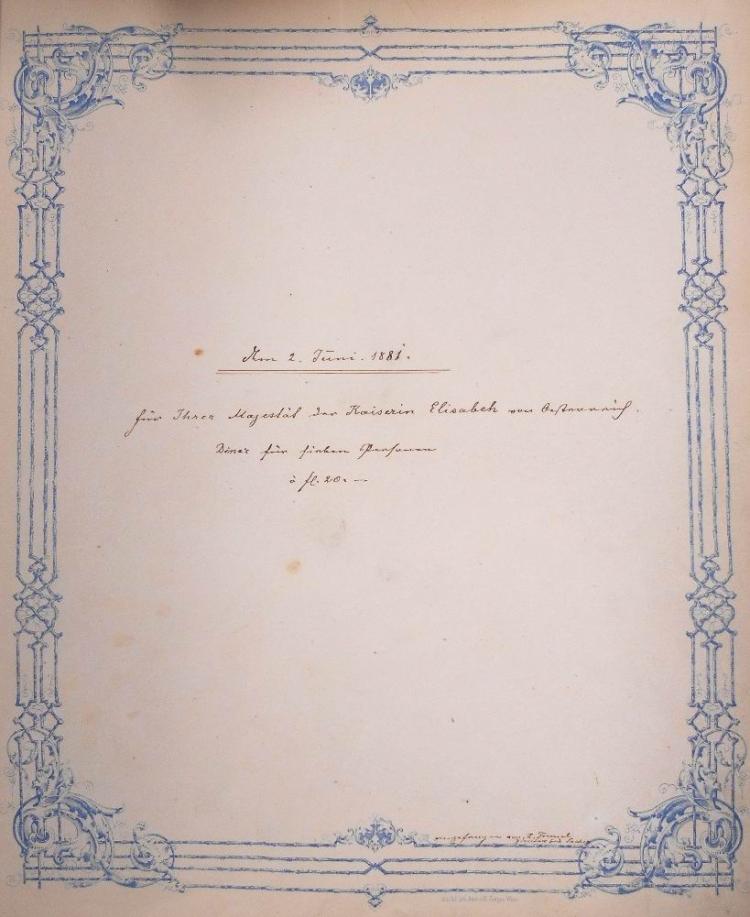 Am 2. Juni. 1881.
für Ihrer Majestät der Kaiserin Elisabeh von Oesterreich.
Diner für sieben Personen
à fl. 20. —